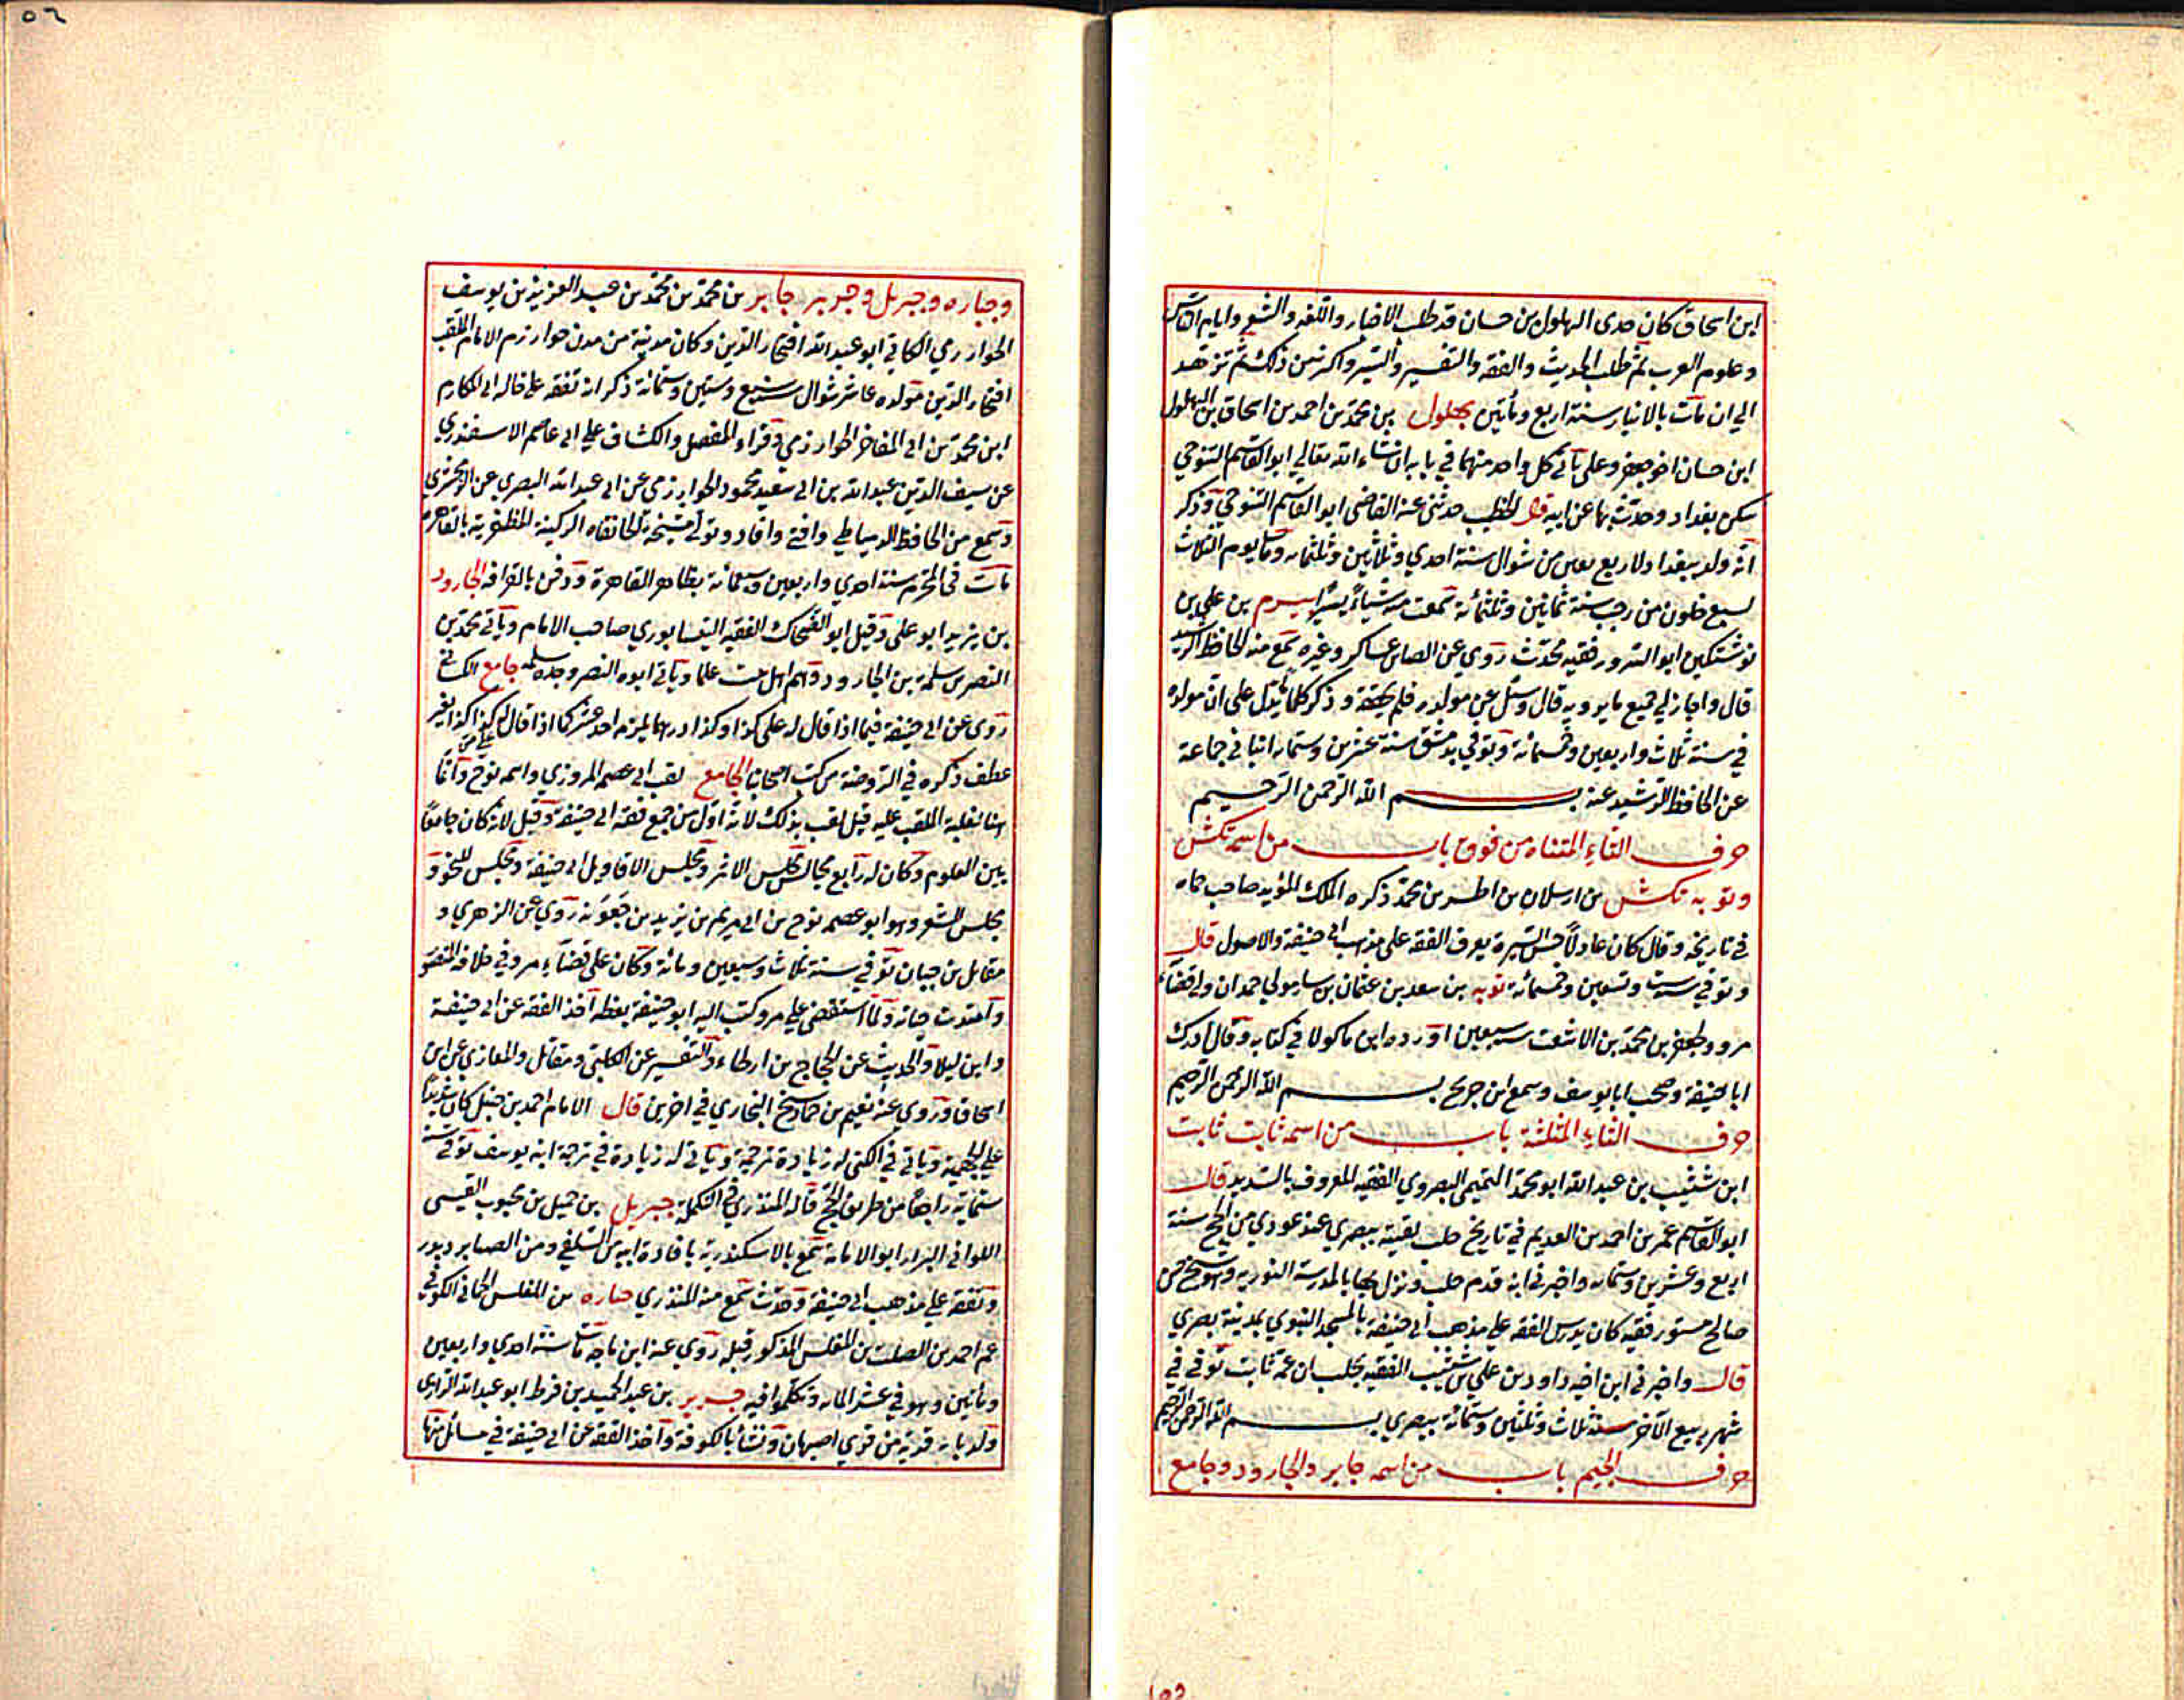 ابن اسحاق كان جدى البهلول بن حسان قد طلب الاخبار واللغه والشعر وايام الناس
وعلوم العرب ثم طلب الحديث والفقه والتفسير والسير واكثر من ذلك ثم تزهد
الي ان مات بالانبار سنة اربع ومأتين بهلول بن محمد بن احمد بن اسحاق بن البهلول
ابن حسان اخو جعفر وعلى يأتى كل واحد منهما في بابه ان شاء الله تعالي ابو القاسم التنوخي
سكن بغداد وحدث بها عن ابيه قال الخطيب حدثنى عنه القاضى ابو القاسم التنوخي وذكر
انه ولد ببغداد لاربع بقين من شوال سنة احدي وثلاثين وثلثمائه ومات يوم الثلاث
لسبع خلون من رجب سنة ثمانين وثلثمائة سمعت منه شيأ يسيرا بيرم بن علي بن
نوشتكين ابو السرور فقيه محدث روي عن ابن عساكر وغيره سمع منه الحافظ الرشيد
قال واجاز لي جميع ما يرويه قال وسئل عن مولده فلم يحققه وذكر كلما يدل على ان مولده
في سنة ثلاث واربعين وخمسمائة وتوفي بدمشق سنة عشرين وستمائه انبانى جماعة
عن الحافظ الرشيد عنه بسم الله الرحمن الرحيم
حرف التاء المثناه من فوق باب من اسمه تكش
وتوبه تكش بن ارسلان بن اطسز بن محمد ذكره الملك المؤيد صاحب حماه
في تاريخه وقال كان عادلا حسن السيرة يعرف الفقه على مذهب ابى حنيفة والاصول قال
وتوفي سنة ست وتسعين وخمسمائه توبه بن سعد بن عثمان بن سيار مولى احمد ان ولى قضاء
مرو وجعفر بن محمد بن الاشعث سنة سبعين اورده ابن ماكولا في كتابه وقال ادرك
ابا حنيفة وصحب ابا يوسف وسمع ابن جريج بسم الله الرحمن الرحيم
حرف الثاء المثلثة باب من اسمه ثابت ثابت
ابن شبيب بن عبد الله ابو محمد التميمى البصروي الفقيه المعروف بالسديد قال
ابو القاسم عمر بن احمد بن العديم في تاريخ حلب لقيته ببصري عند عودي من الحج سنة
اربع وعشرين وستمائه واخبرني انه قدم حلب ونزل بها بالمدرسة النوريه وهو شيخ حسن
صالح مستور فقيه كان يدرس الفقه على مذهب ابى حنيفة بالمسجد النبوي بمدينة بصري
قال واخبرني ابن اخيه داود بن علي بن شبيب الفقيه بحلب ان عمه ثابت توفي في
شهر ربيع الآخر سنة ثلاث وثلثين وستمائة ببصري بسم الله الرحمن الرحيم
حرف الجيم باب من اسمه جابر والجارود وجامع
وجباره وجبريل وجرير جابر بن محمد بن محمد بن عبد العزيز بن يوسف
الخوارزمي الكاثي ابو عبد الله افتخار الدين وكان مدينة من مدن خوارزم الامام الملقب
افتخار الدين مولده عاشر شوال سنة سبع وستين وستمائة ذكر انه تفقه على خاله ابى المكارم
ابن محمد بن ابى المفاخر الخوارزمى وقراء المفصل والكشاف على ابى عاصم الاسفندري
عن سيف الدين عبد الله بن ابى سعيد محمود الخوارزمى عن ابى عبد الله البصري عن الزمخشري
وسمع من الحافظ الدمياطي وافتى وافاد وتولى مشيخة الخانقاه الركنية المظفرية بالقاهرة
مات في المحرم سنة احدي واربعين وسبعمائة بظاهر القاهرة ودفن بالقرافه الجارود
بن يزيد ابو على وقيل ابو الضحاك الفقيه النيسابوري صاحب الامام ويأتى محمد بن
النضر بن سلمة بن الجارود وهم اهل بيت علما ويأتى ابوه النضر وجده سلمه جامع الكسائى
روى عن ابى حنيفة فيما اذا قال له على كذا وكذا درهما يلزمه احد عشر كما اذا قال كذا كذا بغير
عطف ذكره في الروضة من كتب اصحابنا الجامع لقب ابى عصمه المروزي واسمه نوح وانما
هنا لغلبة اللقب عليه قيل لقب بذلك لانه اول من جمع فقه ابى حنيفة وقيل لانه كان جامعا
بين العلوم وكان له اربع مجالس مجلس الاثر ومجلس الاقاويل ابى حنيفة ومجلس للنحو و
مجلس الشعر وهو ابو عصمه نوح بن ابى مريم بن يزيد بن جعونه روي عن الزهري و
مقاتل بن حيان توفي سنة ثلاث وسبعين ومائة وكان على قضاء مرو في خلافة المنصور
وامتدت حياته ولما استقضى على مرو كتب اليه ابو حنيفة يعظه اخذ الفقه عن ابى حنيفة
وابن ليلا والحديث عن الحجاج بن ارطاء والتفسير عن الكلبى ومقاتل والمغازي عن ابن
اسحاق وروي عنه نعيم بن حماد شيخ البخاري في اخرين قال الامام احمد بن حنبل كان شديدا
على الجهمية ويأتى في الكنى له زيادة ترجمة ويأتى له زيادة في ترجمة ابنه يوسف توفى سنة
ستمائة راجعا من طريق الحج قاله المنذري في التكملة جبريل بن جميل بن محبوب القيسى
اللواتى البزار ابو الامانه سمع بالاسكندريه بافادة ابيه من السلفي ومن الصابر ديور
وتفقه على مذهب ابى حنيفة وحدث سمع منه المنذري جباره بن المغلس الحمانى الكوفي
عم احمد بن الصلت بن المغلس المذكور قبله روي عنه ابن ماجه مات سنة احدي واربعين
ومائتين وهو في عشر المائه وتكلموا فيه جرير بن عبد الحميد بن قرط ابو عبد الله الرازى
ولد بايه قرية من قري اصبهان ونشأ بالكوفة واخذ الفقه عن ابى حنيفة في مسائل منها